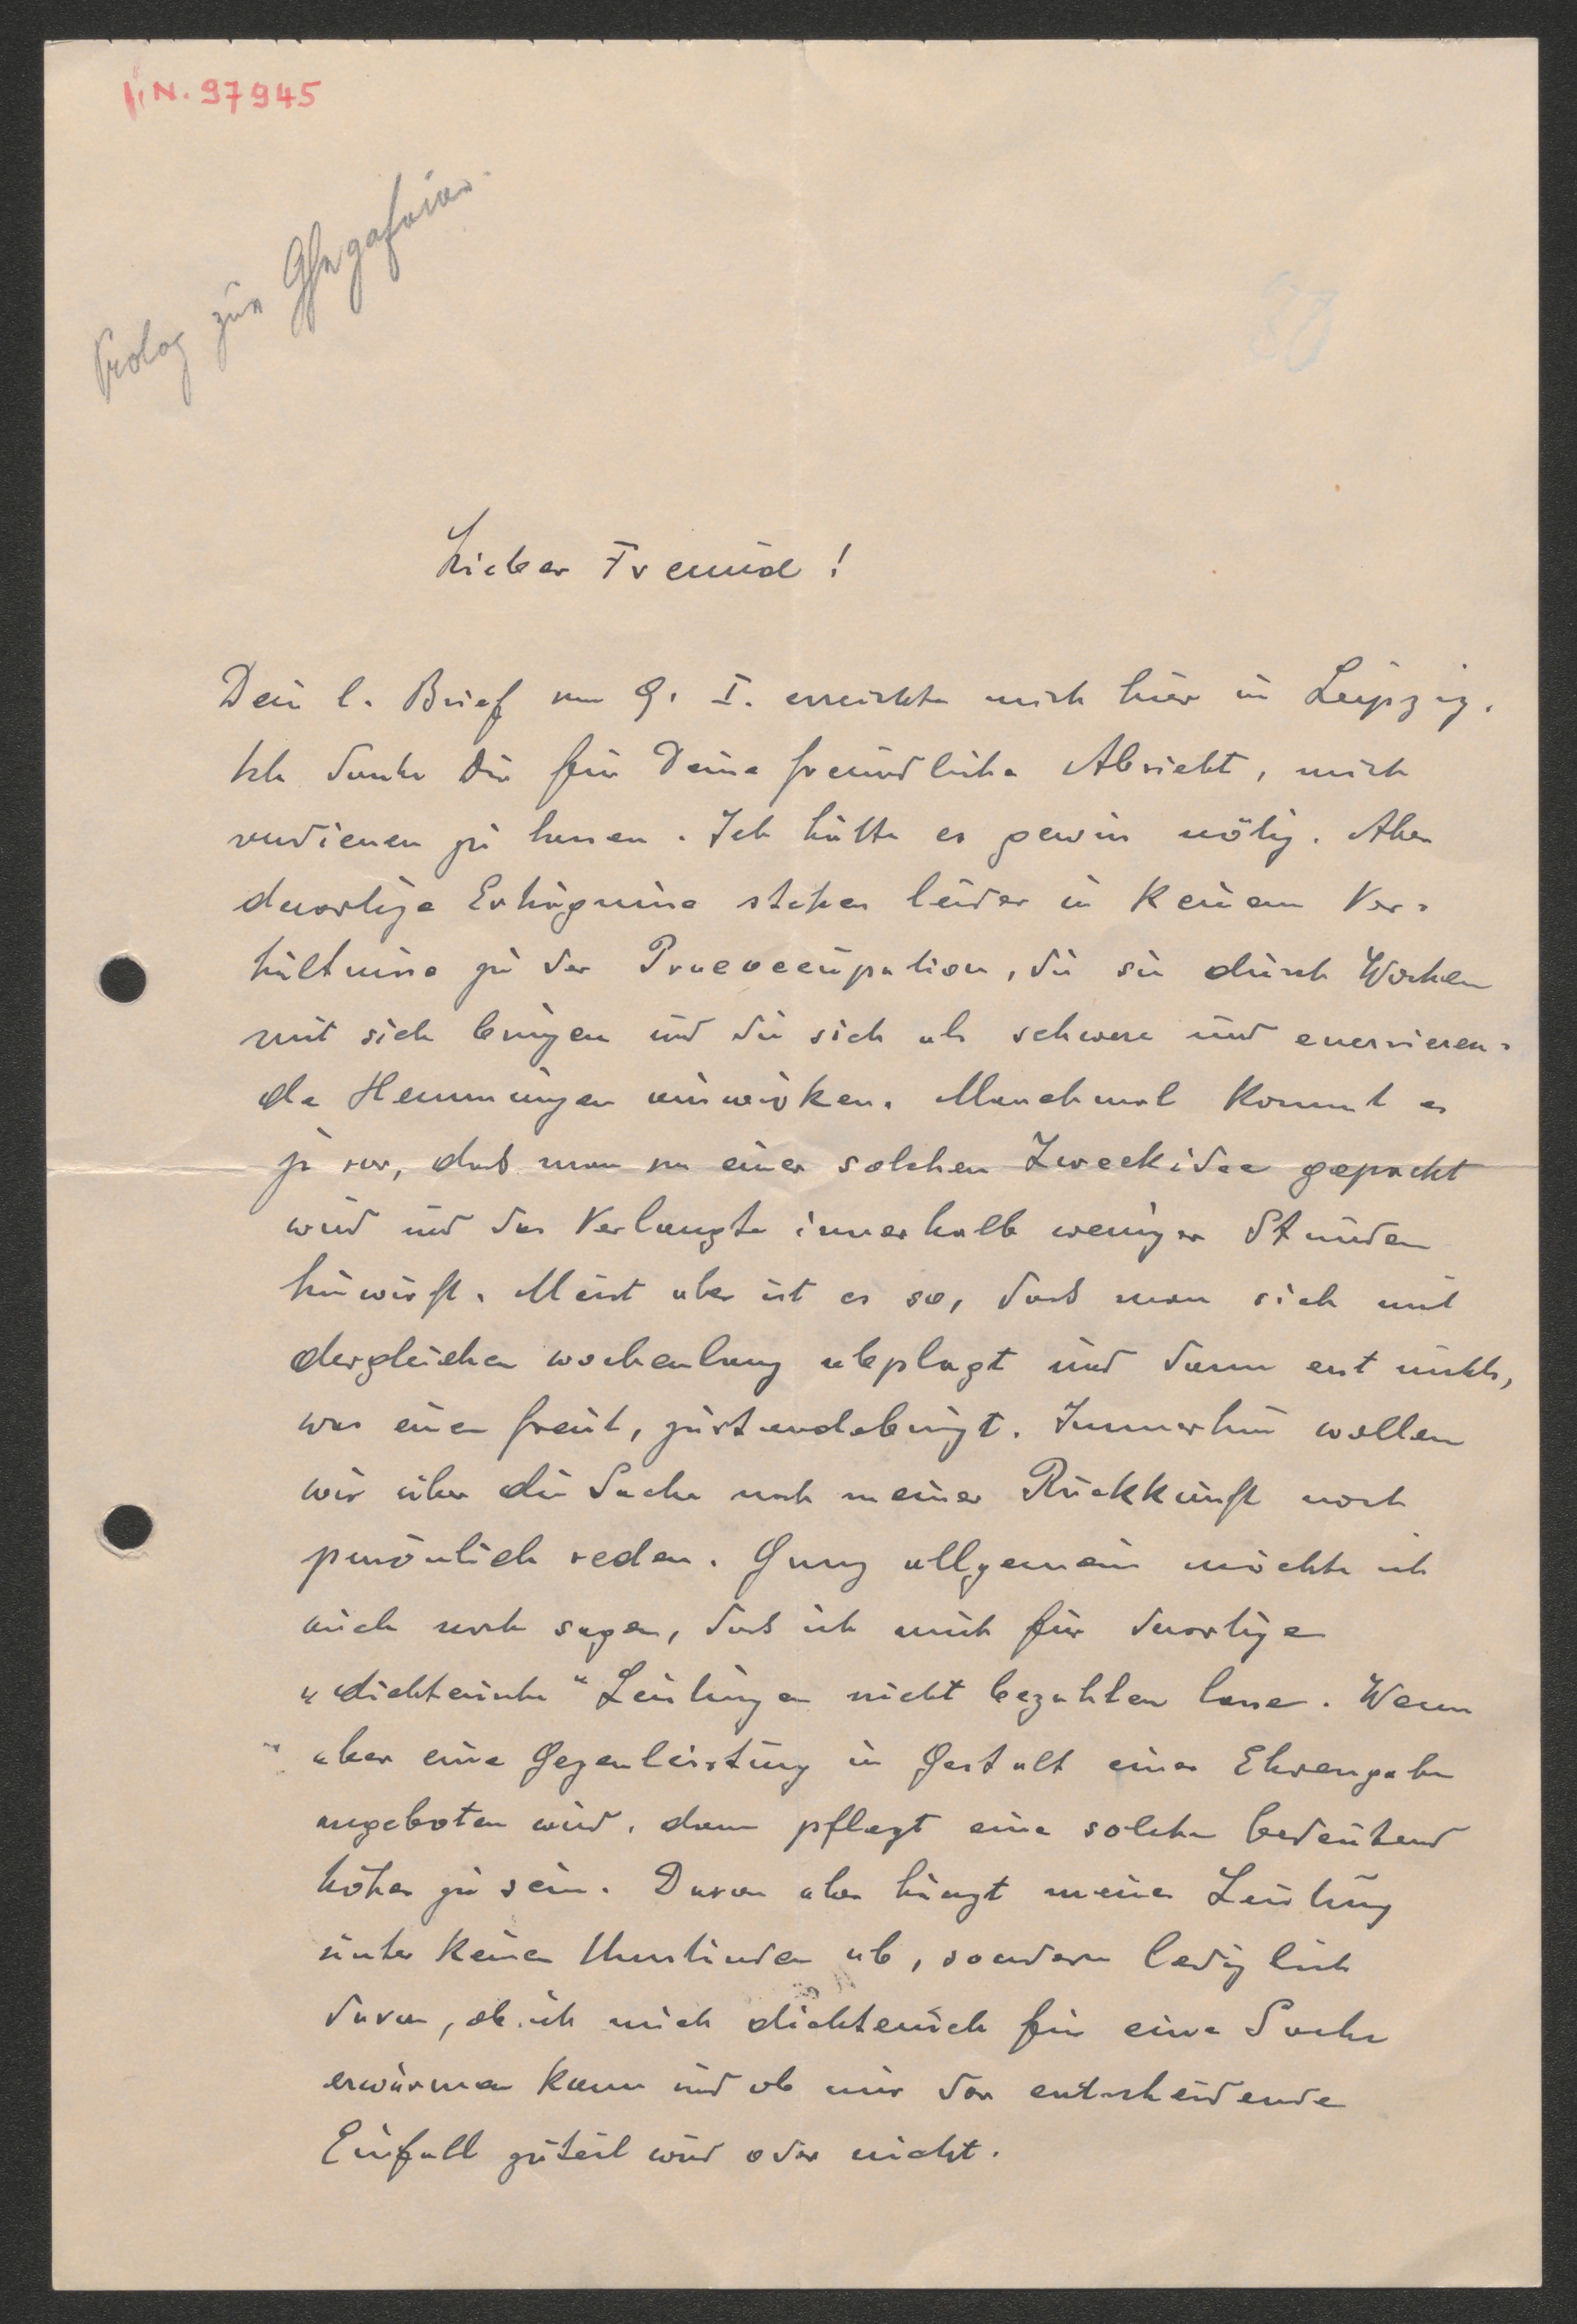 I. N. 97945
Prolog zur Ghegafeier
Lieber Freund!
Dein l. Brief vom 9. I. erreichte mich hier in Leipzig.
Ich danke Dir für Deine freundliche Absicht, mich
verdienen zu lassen. Ich hätte es gewiss nötig. Aber
derartige Erträgnisse stehen leider in keinem Ver-
hältnisse zu der Praeoccupation, die sie durch Wochen
mit sich bringen und die sich als schwere und enervieren-
de Hemmungen auswirken. Manchmal kommt es
ja vor, dass man von einer solchen Zweckidee gepackt
wird und das Verlangte innerhalb weniger Stunden
hinwirft. Meist aber ist es so, dass man sich mit
dergleichen wochenlang abplagt und dann erst nichts,
was einen freut, zustandebringt. Immerhin wollen
wir über die Sache nach meiner Rückkunft noch
persönlich reden. Ganz allgemein möchte ich
auch noch sagen, dass ich mich für derartige
„dichterische“ Leistungen nicht bezahlen lasse. Wenn
aber eine Gegenleistung in Gestalt einer Ehrengabe
angeboten wird, dann pflegt eine solche bedeutend
höher zu sein. Davon aber hängt meine Leistung
unter keinen Umständen ab, sondern lediglich
davon, ob ich mich dichterisch für eine Sache
erwärmen kann und ob mir der entscheidende
Einfall zuteil wird oder nicht.